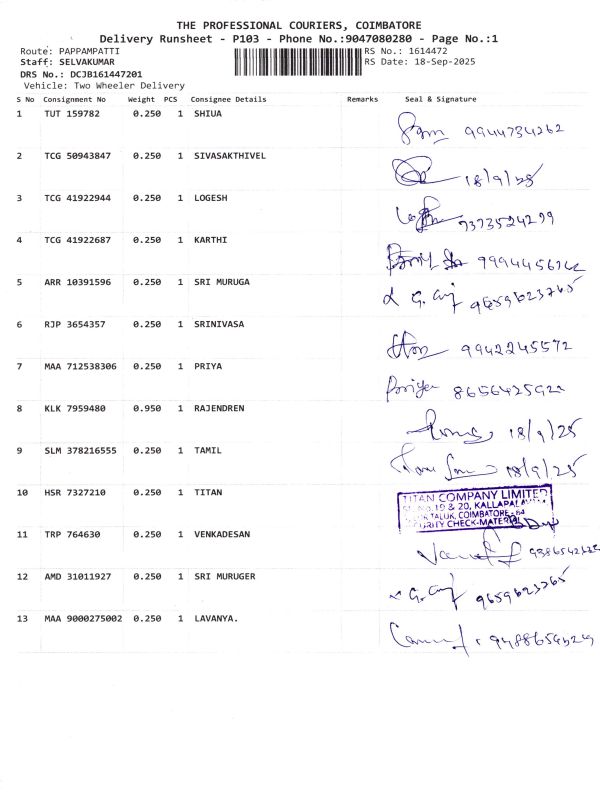 THE PROFESSIONAL COURIERS, COIMBATORE
Delivery Runsheet - P103 - Phone No.:9047080280 - Page No.:1
Route: PAPPAMPATTI RS No.: 1614472
Staff: SELVAKUMAR RS Date: 18-Sep-2025
DRS No.: DCJB161447201
Vehicle: Two Wheeler Delivery
S No Consignment No Weight PCS Consignee Details Remarks Seal & Signature
1 TUT 159782 0.250 1 SHIUA 9944734262
2 TCG 50943847 0.250 1 SIVASAKTHIVEL 18/9/25
3 TCG 41922944 0.250 1 LOGESH 7373524299
4 TCG 41922687 0.250 1 KARTHI
5 ARR 10391596 0.250 1 SRI MURUGA 9659623765
6 RJP 3654357 0.250 1 SRINIVASA 9942245572
7 MAA 712538306 0.250 1 PRIYA Priya
8 KLK 7959480 0.950 1 RAJENDREN 18/9/25
9 SLM 378216555 0.250 1 TAMIL 18/9/25
10 HSR 7327210 0.250 1 TITAN
TITAN COMPANY LIMITED
No. 19 & 20, KALLAPALAYAM
TALUK, COIMBATORE - 64
SECURITY CHECK-MATERIAL
11 TRP 764630 0.250 1 VENKADESAN
12 AMD 31011927 0.250 1 SRI MURUGER 9659623765
13 MAA 9000275002 0.250 1 LAVANYA.